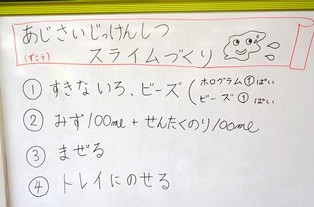 あじさいじっけんしつ
(ずこう) スライムづくり
① すきないろ、ビーズ (ホログラム①ぱい
ビーズ①ぱい
② みず100ml + せんたくのり100ml
③ まぜる
④ トレイにのせる